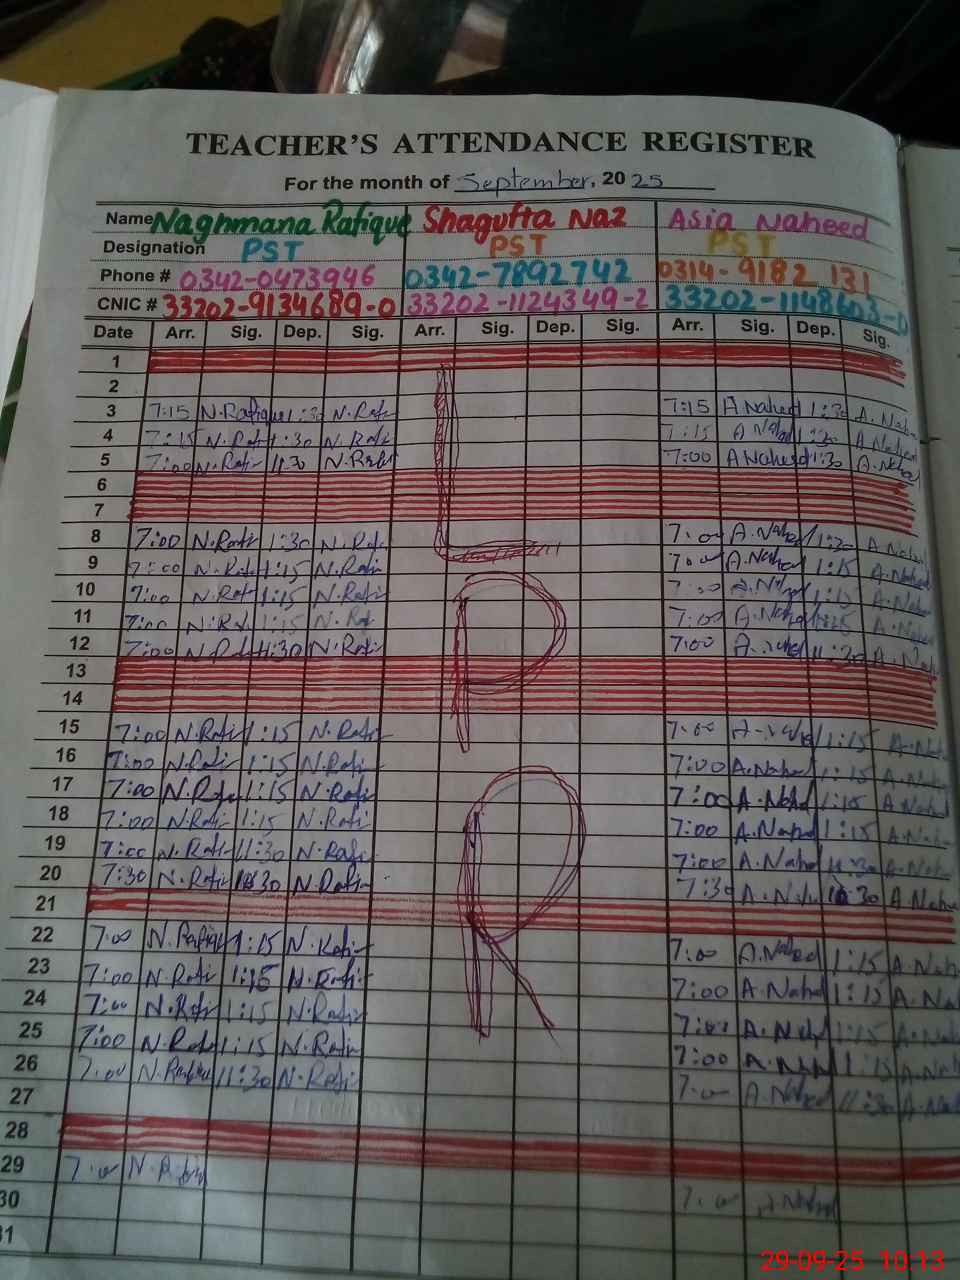 TEACHER'S ATTENDANCE REGISTER
For the month of September, 2025
Name Naghmana Rafique Shagufta Naz Asia Naheed
Designation PST PST PST
Phone # 0342-0473946 0342-7892742 0314-9182131
CNIC # 33202-9134689-0 33202-1124349-2 33202-1148603-0
Date Arr. Sig. Dep. Sig. Arr. Sig. Dep. Sig. Arr. Sig. Dep. Sig.
1
2
3 7:15 N.Rafique 1:30 N.Rafi 7:15 A Naheed 1:30 A. Nahe
4 7:15 N.Rafi 1:30 N.Rafi 7:15 A Nahed 1:30 A Naheed
5 7:00 N.Rafi 11:30 N.Rafi 7:00 A Naheed 11:30 A.Nahed
6
7
L
8 7:00 N.Rafi 1:30 N.Rafi 7:00 A.Nahed 1:30 A Nahed
9 7:00 N.Rafi 1:15 N.Rafi 7:00 A.Nahed 1:15 A.Nahed
10 7:00 N.Rafi 1:15 N.Rafi 7:00 1:15 A.Nahed
11 7:00 N.Rafi 1:15 N.Rafi 7:00 A.Nahed 1:15 A.Nahed
12 7:00 N.Rafi 11:30 N.Rafi 7:00 11:30 A.Nahed
P
13
14
15 7:00 N.Rafi 1:15 N.Rafi 7:00 1:15 A.Nahe
16 7:00 N.Rafi 1:15 N.Rafi 7:00 A.Nahed 1:15 A.Nahe
17 7:00 N.Rafi 1:15 N.Rafi 7:00 A.Nahd 1:15 A.Nahed
18 7:00 N.Rafi 1:15 N.Rafi 7:00 A.Nahed 1:15 A.Nahe
19 7:00 N.Rafi 11:30 N.Rafi 7:00 A.Nahed 11:30 A.Nahed
20 7:30 N.Rafi 10:30 N.Rafi 7:30 A.Nahe 10:30 A.Nahe
R
21
22 7:00 N.Rafique 1:15 N.Rafi 7:00 A.Nahed 1:15 A.Nah
23 7:00 N.Rafi 1:15 N.Rafi 7:00 A.Nahed 1:15 A.Na
24 7:00 N.Rafi 1:15 N.Rafi 7:00 A.Nahd 1:15 A.Nah
25 7:00 N.Rafi 1:15 N.Rafi 7:00 1:15 A.Nah
26 7:00 N.Rafique 11:30 N.Rafi 7:00 A.Nahed 11:30 A.Nah
27
28
29 7:00 N.Rafiq 7:00 A.Nahed
30
31
29-09-25 10:13